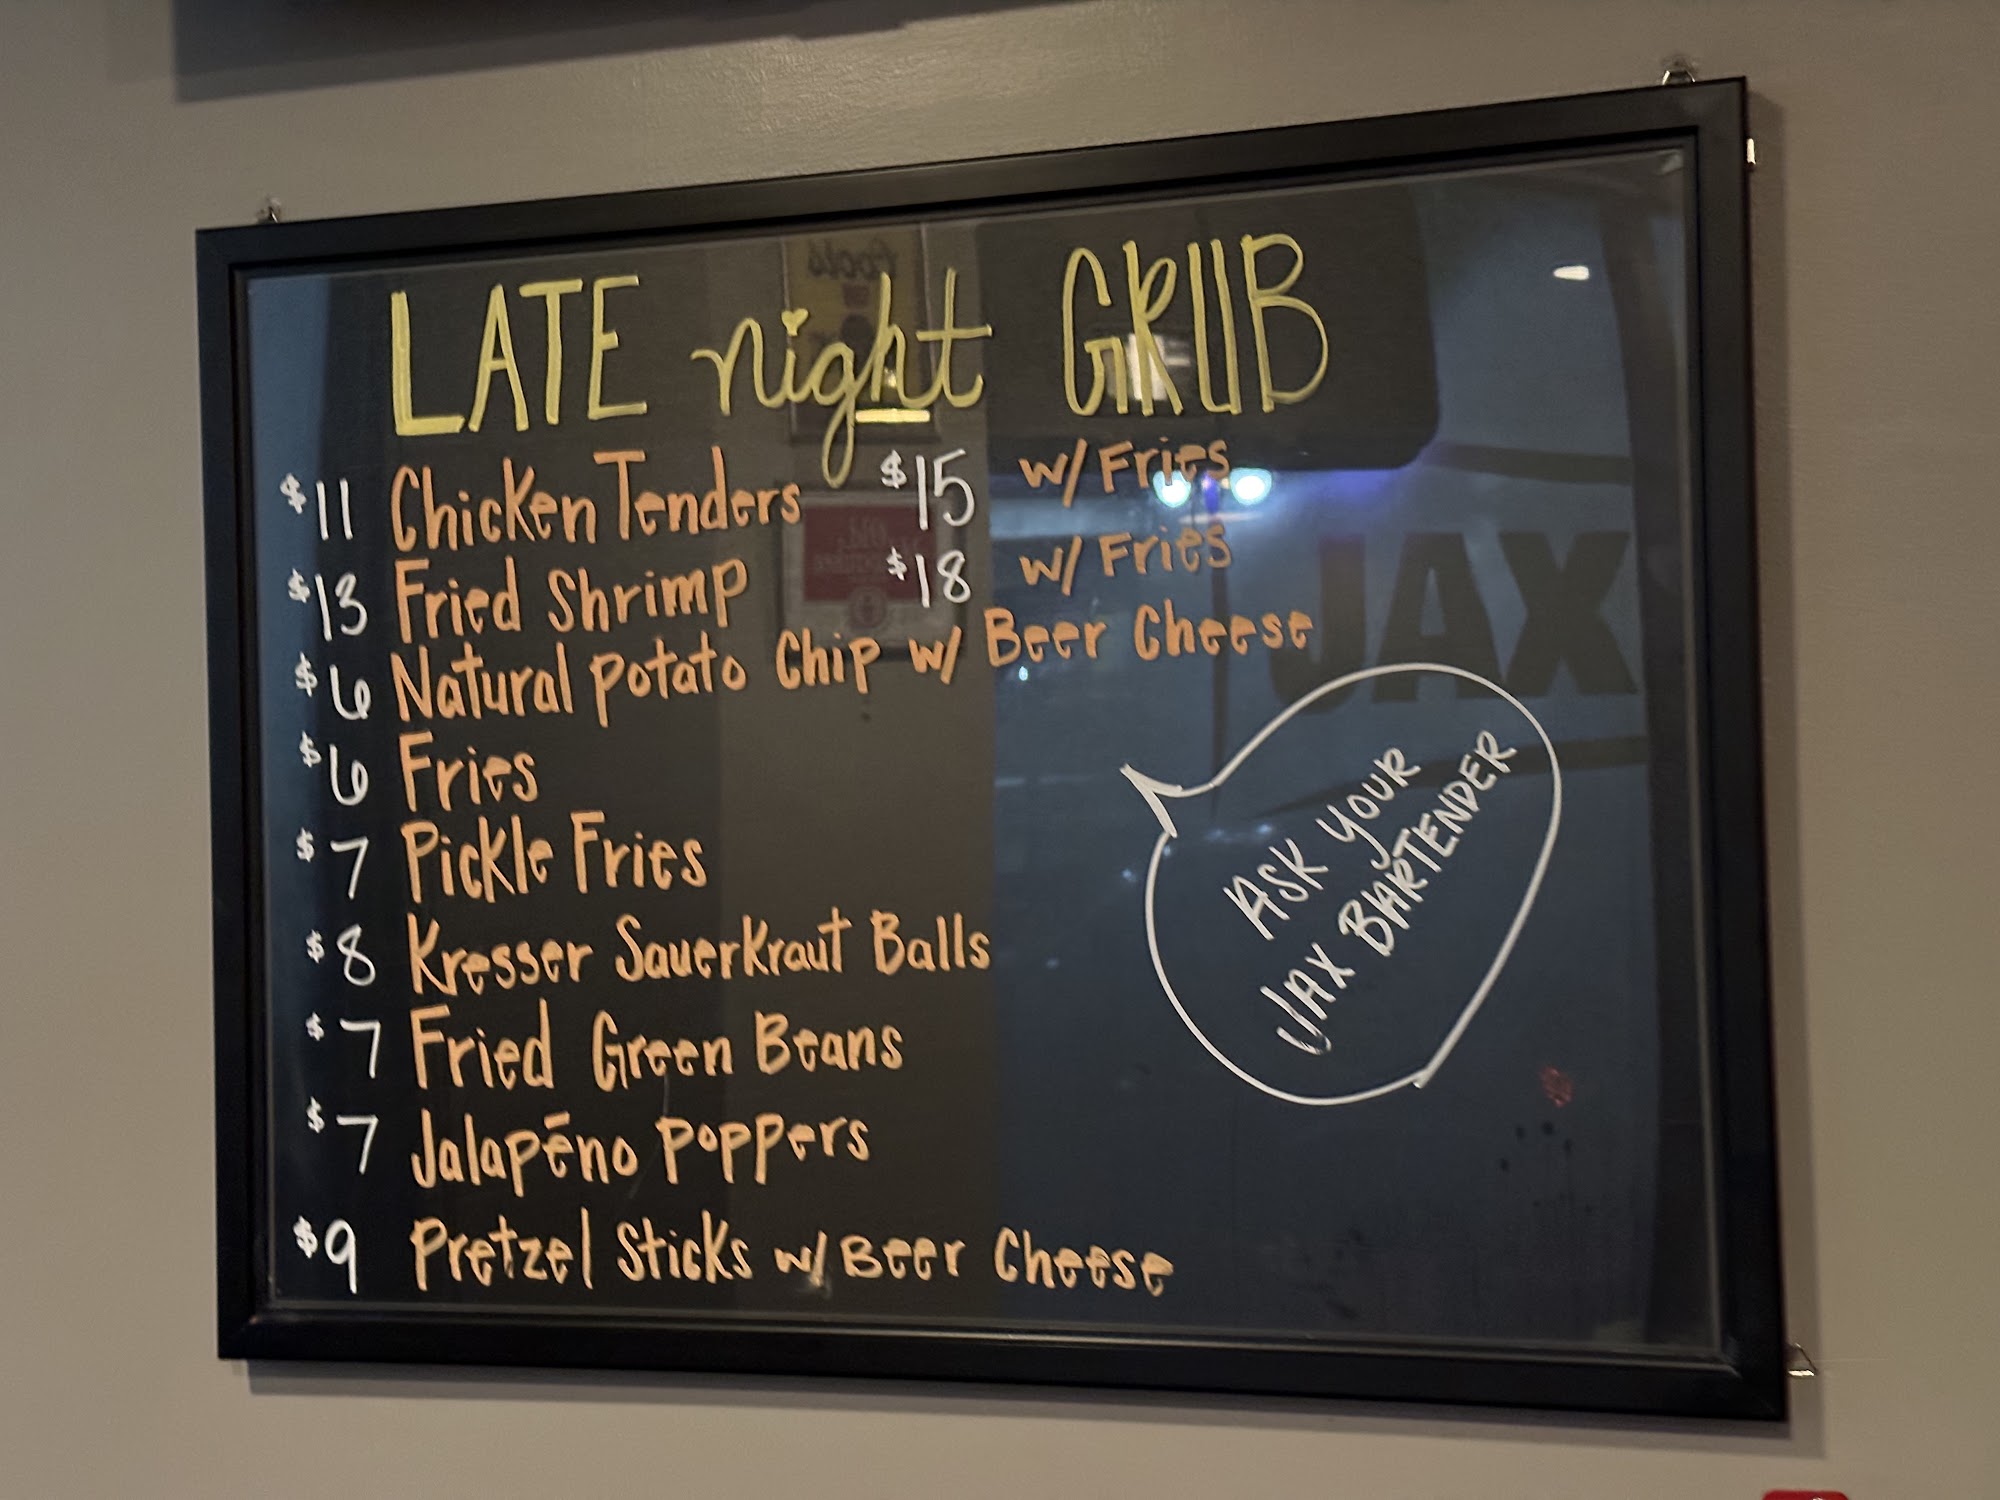 LATE night GRUB
$11 Chicken Tenders $15 w/ Fries
$13 Fried Shrimp $18 w/ Fries
$6 Natural Potato Chip w/ Beer Cheese
$6 Fries
$7 Pickle Fries
$8 Kresser Sauerkraut Balls
$7 Fried Green Beans
$7 Jalapēno Poppers
$9 Pretzel Sticks w/ Beer Cheese
ASK YOUR
JAX BARTENDER
JAX